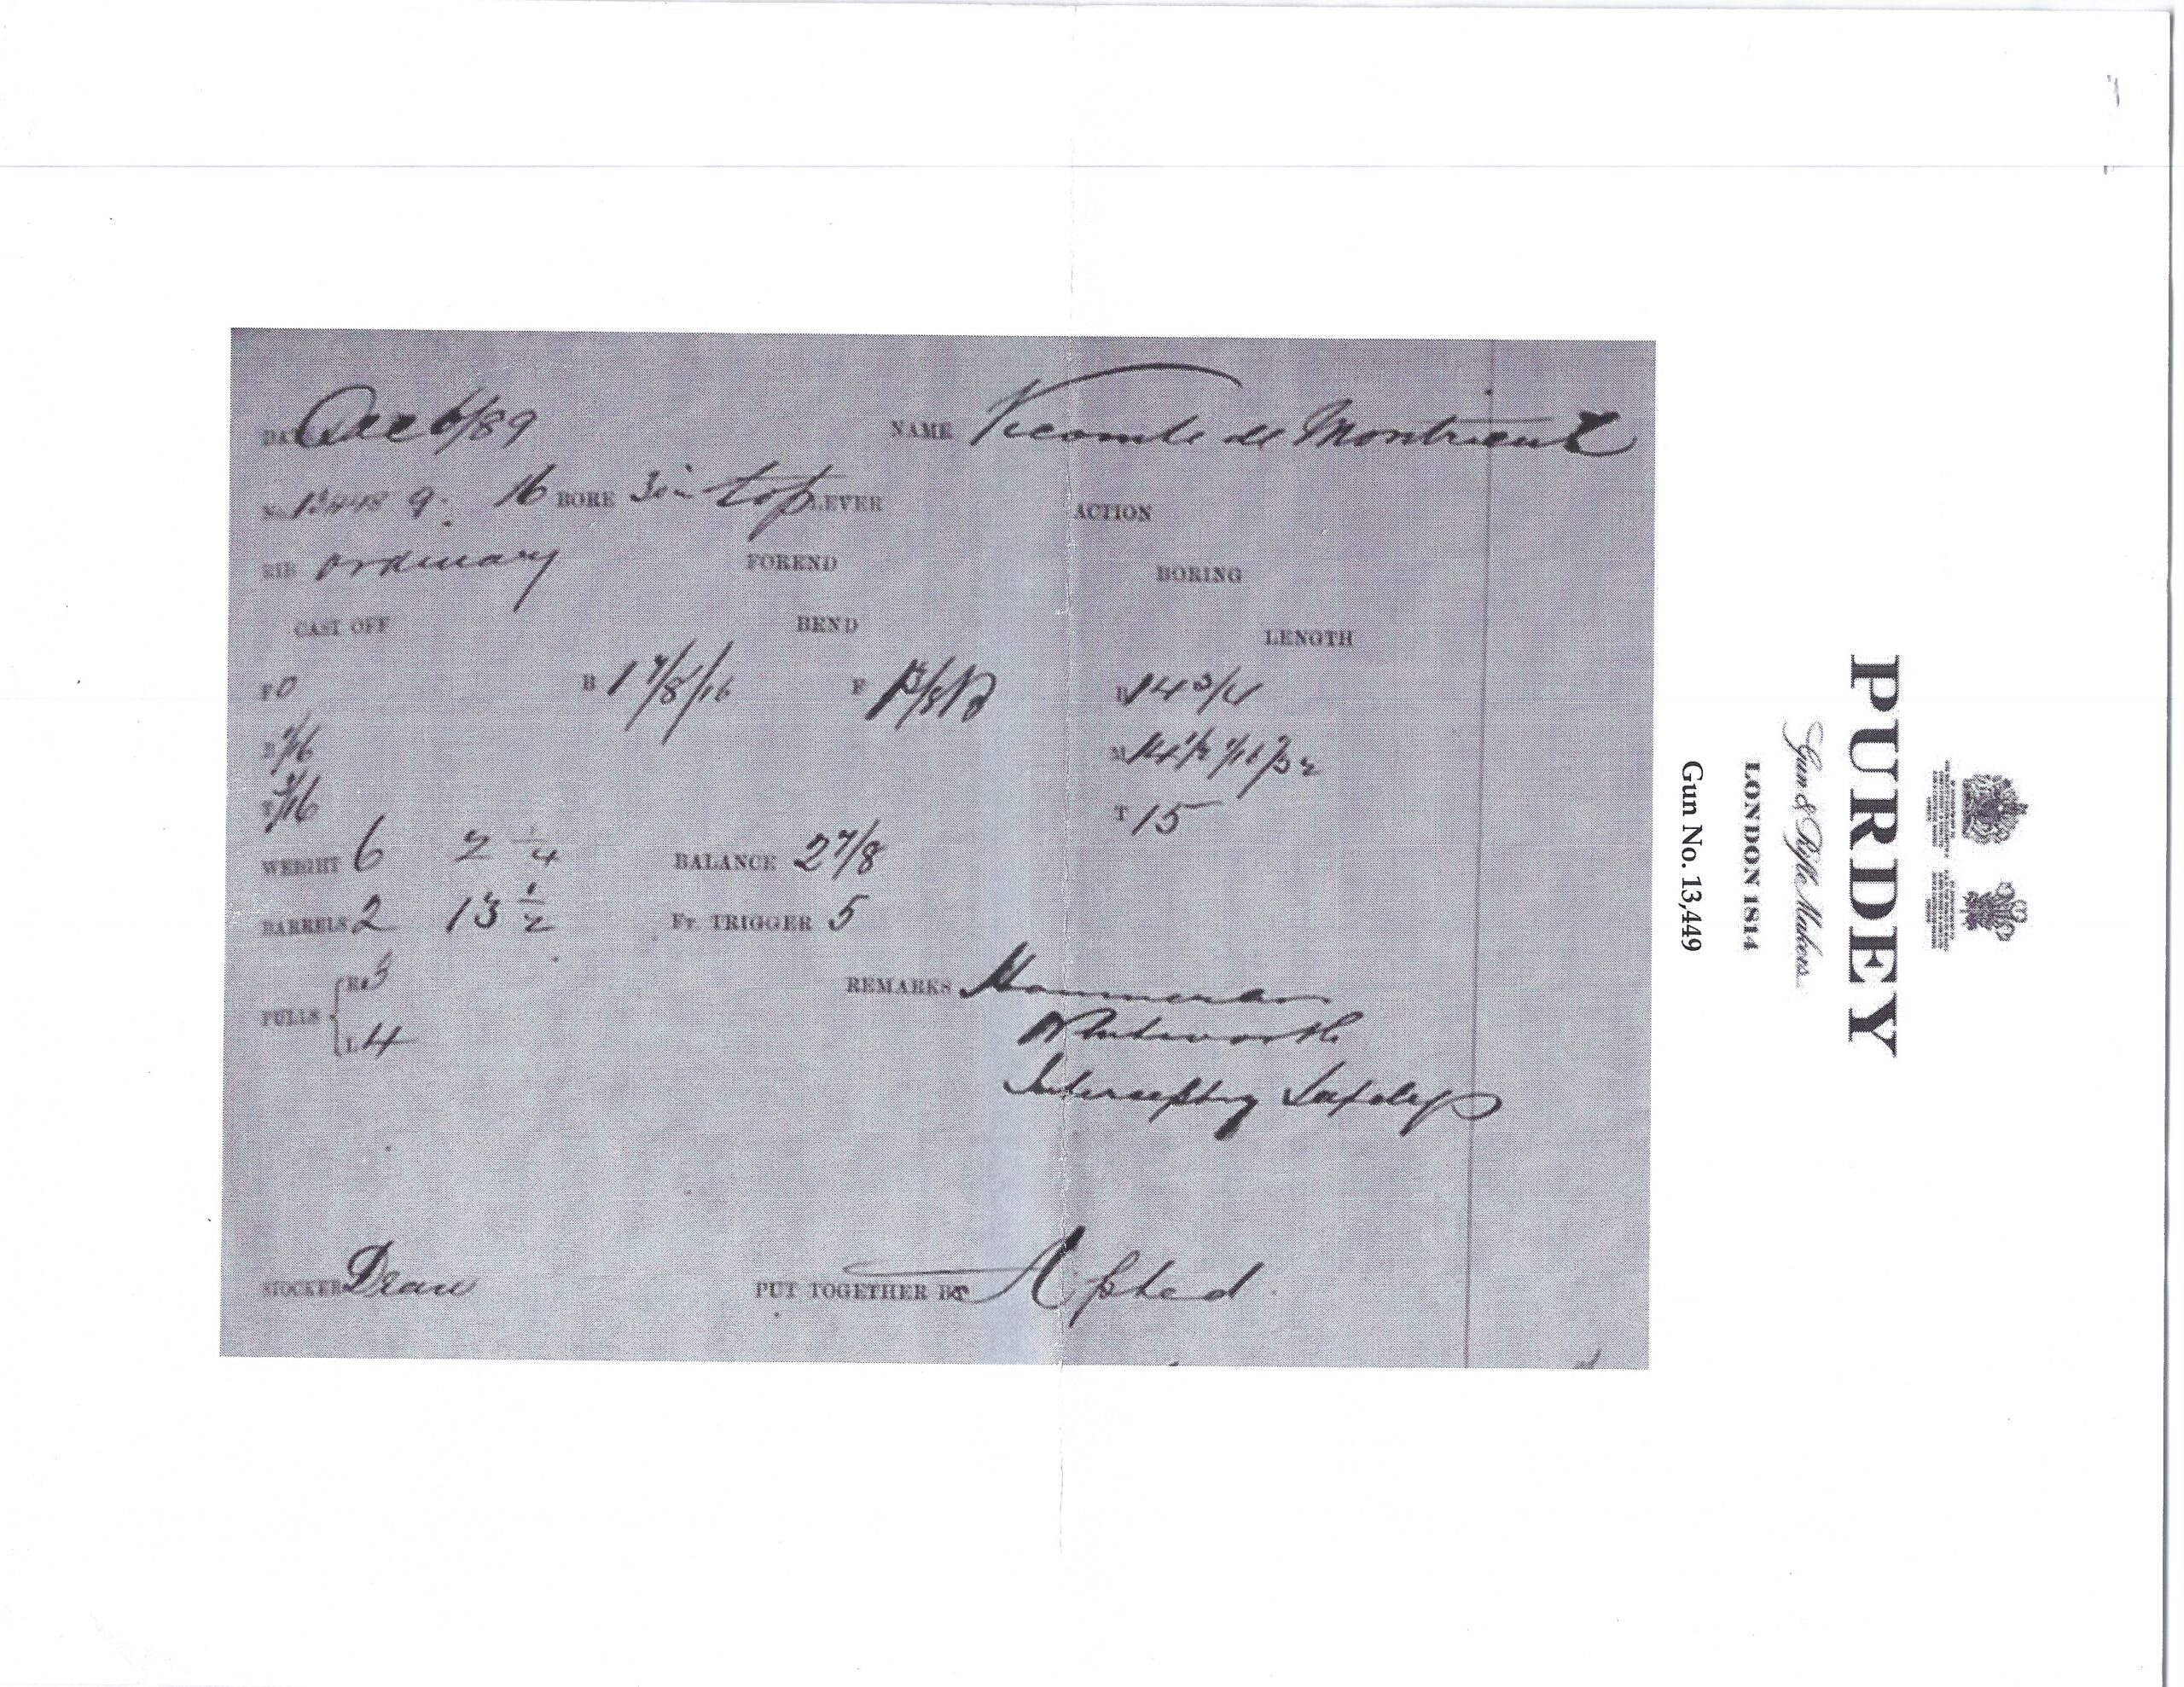 DATE Dec 6/89 NAME Vicomte de
No. 13448 9. 16 BORE 30 in top LEVER ACTION
RIB ordinary FOREND BORING
CAST OFF BEND LENGTH
F 0 B 1 7/8/16 F B 14 3/4
B /16 M 14 1/2 1/16 /32
T 3/16 T 15
WEIGHT 6 2 1/4 BALANCE 2 7/8
BARRELS 2 13 1/2 Fr. TRIGGER 5
PULLS R. L. 4
REMARKS Hammerless
Whitworth
Intercepting Safetys
STOCKER Dean PUT TOGETHER BY Apsted
PURDEY
Gun & Rifle Makers
LONDON 1814
Gun No. 13,449